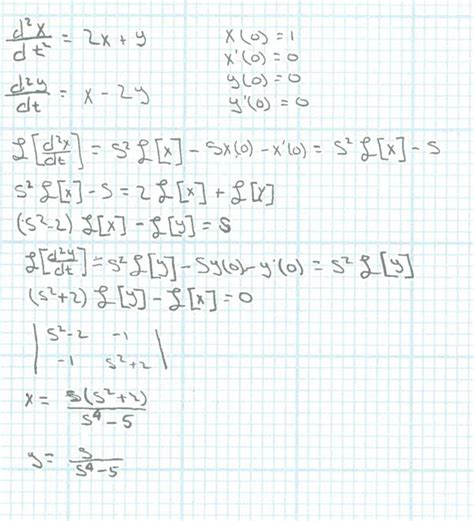 d²x/dt² = 2x + y    x(0) = 1
x'(0) = 0
d²y/dt = x - 2y    y(0) = 0
y'(0) = 0
ℒ[d²x/dt] = s² ℒ[x] - sx(0) - x'(0) = s² ℒ[x] - s
s² ℒ[x] - s = 2 ℒ[x] + ℒ[y]
(s²-2) ℒ[x] - ℒ[y] = s
ℒ[d²y/dt] = s² ℒ[y] - sy(0) - y'(0) = s² ℒ[y]
(s²+2) ℒ[y] - ℒ[x] = 0
| s²-2  -1 |
| -1  s²+2 |
x = s(s²+2)/s⁴-5
y = s/s⁴-5